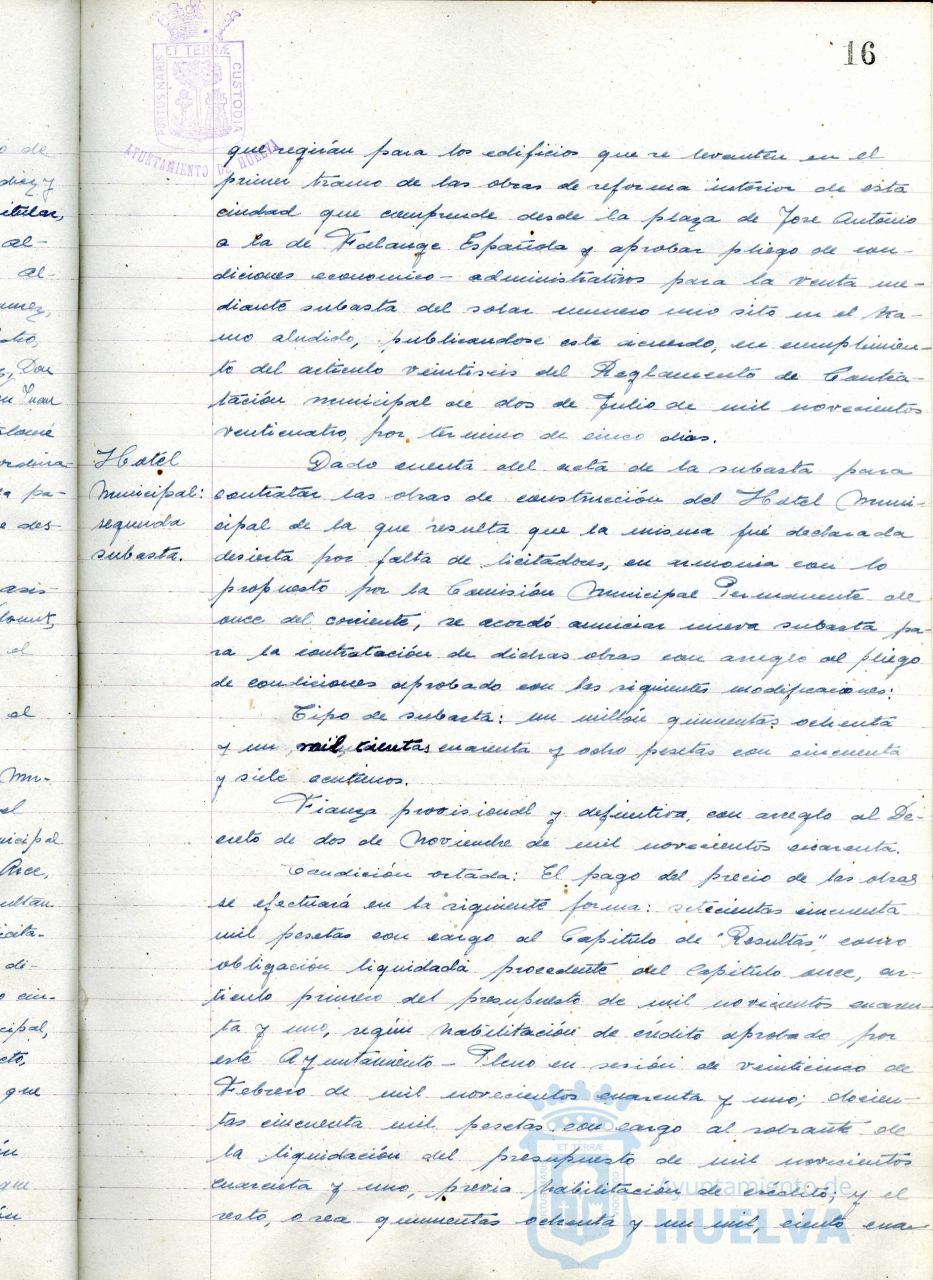 16
ET TERRÆ
PORTUS MARIS
CUSTODIA
AYUNTAMIENTO DE HUELVA
que regirán para los edificios que se levanten en el
primer tramo de las obras de reforma interior de esta
ciudad que comprende desde la plaza de Jose Antonio
a la de Falange Española y aprobar pliego de con-
diciones economico-administrativos para la venta me-
diante subasta del solar numero uno sito en el tra-
mo aludido, publicandose este acuerdo, en cumplimien-
to del articulo veintiseis del Reglamento de Contra-
tación municipal de dos de Julio de mil novecientos
venticuatro, por termino de cinco dias.
Hotel
Municipal:
segunda
subasta.
Dado cuenta del acta de la subasta para
contratar las obras de construcción del Hotel Muni-
cipal de la que resulta que la misma fué declarada
desierta por falta de licitadores, en armonia con lo
propuesto por la Comisión Municipal Permanente de
once del corriente, se acordó anunciar nueva subasta pa-
ra la contratación de dichas obras con arreglo al pliego
de condiciones aprobado con las siguientes modificaciones:
Tipo de subasta: un millón quinientas ochenta
y un mil, cientas cuarenta y ocho pesetas con cincuenta
y siete centimos.
Fianza provisional y definitiva, con arreglo al De-
creto de dos de Noviembre de mil novecientos cuarenta.
Condición octada: El pago del precio de las obras
se efectuará en la siguiente forma: setecientas cincuenta
mil pesetas con cargo al Capitulo de "Resultas" como
obligación liquidada procedente del Capitulo once, ar-
ticulo primero del presupuesto de mil novecientos cuaren-
ta y uno, según habilitación de crédito aprobado por
este Ayuntamiento-Pleno en sesión de veinticinco de
Febrero de mil novecientos cuarenta y uno; docien-
tas cincuenta mil pesetas con cargo al sobrante de
la liquidación del presupuesto de mil novecientos
cuarenta y uno, previa habilitación de credito; y el
resto, o sea quinientas ochenta y un mil, ciento cua-
Ayuntamiento de
HUELVA